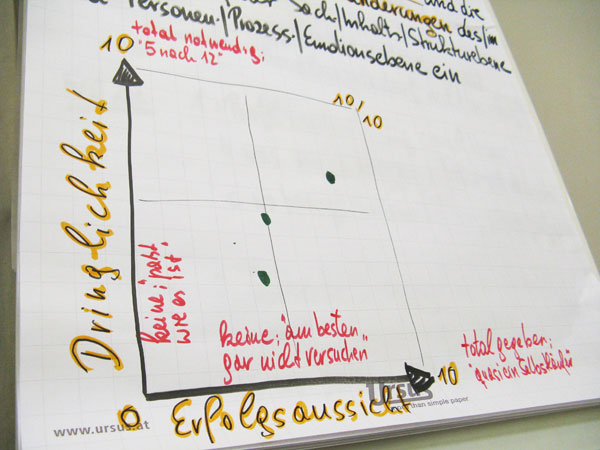 Sach-/Inhalts-/Strukturebene
änderungen des/im
und die
Personen-/Prozess-/Emotionsebene ein
total notwendig;
"5 nach 12"
10
10/10
Dringlichkeit
keine; passt
wie es ist.
keine; "am besten
gar nicht versuchen"
total gegeben;
"quasi ein Selbstläufer"
10
0
Erfolgsaussicht
Ursus
more than simple paper
www.ursus.at